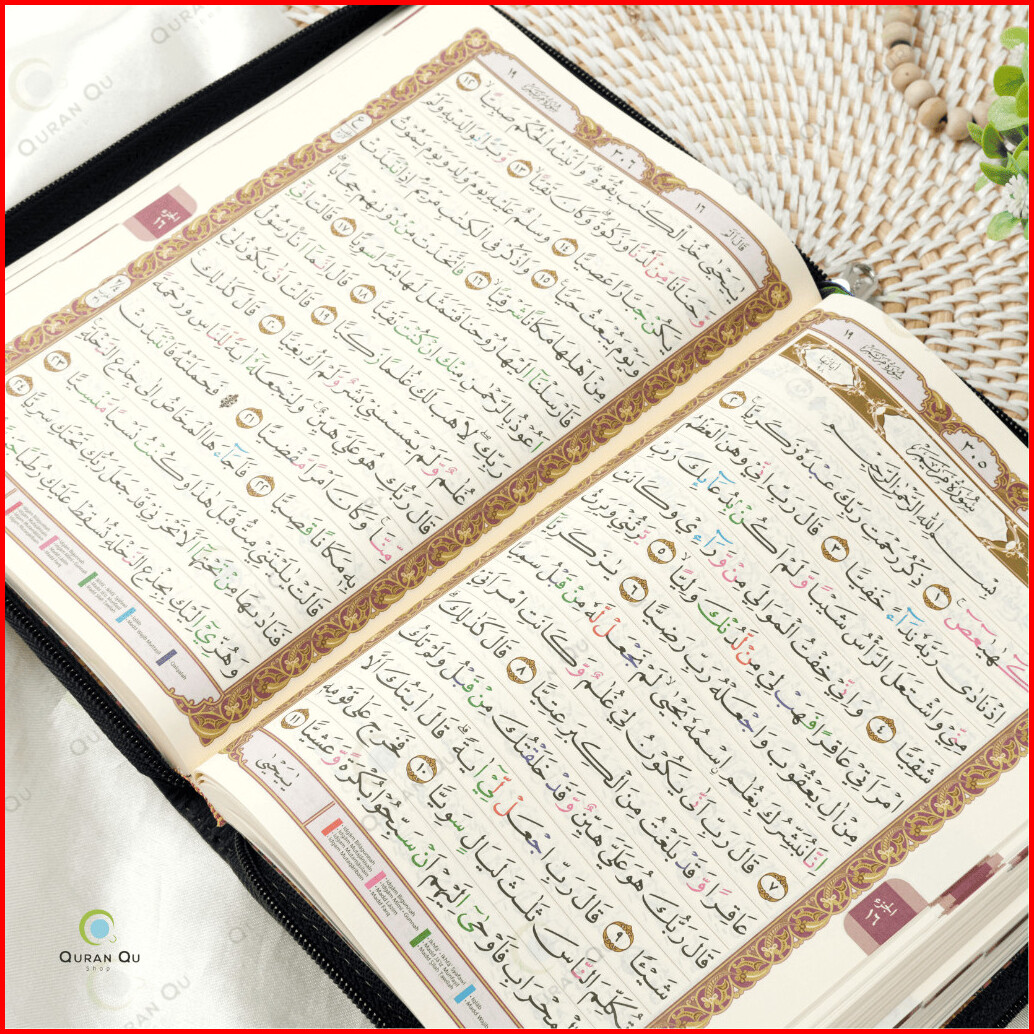 ١٩
سُوْرَةُ مَرْيَمَ
٣٠٥
سُوْرَةُ مَرْيَمَ
بِسْمِ اللّٰهِ الرَّحْمٰنِ الرَّحِيْمِ
كۤهٰيٰعۤصۤ ۝١ ذِكْرُ رَحْمَتِ رَبِّكَ عَبْدَهٗ زَكَرِيَّا ۝٢
اِذْ نَادٰى رَبَّهٗ نِدَاۤءً خَفِيًّا ۝٣ قَالَ رَبِّ اِنِّيْ وَهَنَ الْعَظْمُ
مِنِّيْ وَاشْتَعَلَ الرَّأْسُ شَيْبًا وَّلَمْ اَكُنْ ۢبِدُعَاۤىِٕكَ رَبِّ
شَقِيًّا ۝٤ وَاِنِّيْ خِفْتُ الْمَوَالِيَ مِنْ وَّرَاۤءِيْ وَكَانَتِ
امْرَاَتِيْ عَاقِرًا فَهَبْ لِيْ مِنْ لَّدُنْكَ وَلِيًّا ۝٥ يَّرِثُنِيْ وَيَرِثُ
مِنْ اٰلِ يَعْقُوْبَ وَاجْعَلْهُ رَبِّ رَضِيًّا ۝٦ يٰزَكَرِيَّآ
اِنَّا نُبَشِّرُكَ بِغُلٰمِ ِۨاسْمُهٗ يَحْيٰى لَمْ نَجْعَلْ لَّهٗ مِنْ قَبْلُ سَمِيًّا
۝٧ قَالَ رَبِّ اَنّٰى يَكُوْنُ لِيْ غُلٰمٌ وَّكَانَتِ امْرَاَتِيْ
عَاقِرًا وَّقَدْ بَلَغْتُ مِنَ الْكِبَرِ عِتِيًّا ۝٨ قَالَ كَذٰلِكَ
قَالَ رَبُّكَ هُوَ عَلَيَّ هَيِّنٌ وَّقَدْ خَلَقْتُكَ مِنْ قَبْلُ وَلَمْ تَكُ
شَيْـًٔا ۝٩ قَالَ رَبِّ اجْعَلْ لِّيْٓ اٰيَةً ۗقَالَ اٰيَتُكَ اَلَّا
تُكَلِّمَ النَّاسَ ثَلٰثَ لَيَالٍ سَوِيًّا ۝١٠ فَخَرَجَ عَلٰى قَوْمِهٖ
الْمِحْرَابِ فَاَوْحٰٓى اِلَيْهِمْ اَنْ سَبِّحُوْا بُكْرَةً وَّعَشِيًّا ۝١١
يٰيَحْيٰى
الجزء ١٦
١٩
سُوْرَةُ مَرْيَمَ
٣٠٦
١٦
قَالَ اَلَمْ
يٰيَحْيٰى خُذِ الْكِتٰبَ بِقُوَّةٍ ۗوَاٰتَيْنٰهُ الْحُكْمَ صَبِيًّا ۝١٢
وَّحَنَانًا مِّنْ لَّدُنَّا وَزَكٰوةً ۗوَكَانَ تَقِيًّا ۝١٣ وَّبَرًّا ۢبِوَالِدَيْهِ وَلَمْ
يَكُنْ جَبَّارًا عَصِيًّا ۝١٤ وَسَلٰمٌ عَلَيْهِ يَوْمَ وُلِدَ وَيَوْمَ يَمُوْتُ
وَيَوْمَ يُبْعَثُ حَيًّا ۝١٥ وَاذْكُرْ فِى الْكِتٰبِ مَرْيَمَۘ اِذِ انْتَبَذَتْ
مِنْ اَهْلِهَا مَكَانًا شَرْقِيًّا ۝١٦ فَاتَّخَذَتْ مِنْ دُوْنِهِمْ حِجَابًا
فَاَرْسَلْنَآ اِلَيْهَا رُوْحَنَا فَتَمَثَّلَ لَهَا بَشَرًا سَوِيًّا ۝١٧ قَالَتْ اِنِّيْٓ
اَعُوْذُ بِالرَّحْمٰنِ مِنْكَ اِنْ كُنْتَ تَقِيًّا ۝١٨ قَالَ اِنَّمَآ اَنَا۠ رَسُوْلُ
رَبِّكِۖ لِاَهَبَ لَكِ غُلٰمًا زَكِيًّا ۝١٩ قَالَتْ اَنّٰى يَكُوْنُ لِيْ
غُلٰمٌ وَّلَمْ يَمْسَسْنِيْ بَشَرٌ وَّلَمْ اَكُ بَغِيًّا ۝٢٠ قَالَ كَذٰلِكِ
قَالَ رَبُّكِ هُوَ عَلَيَّ هَيِّنٌۚ وَلِنَجْعَلَهٗٓ اٰيَةً لِّلنَّاسِ وَرَحْمَةً
مِّنَّاۚ وَكَانَ اَمْرًا مَّقْضِيًّا ۝٢١ ۞ فَحَمَلَتْهُ فَانْتَبَذَتْ
بِهٖ مَكَانًا قَصِيًّا ۝٢٢ فَاَجَاۤءَهَا الْمَخَاضُ اِلٰى جِذْعِ النَّخْلَةِۚ
قَالَتْ يٰلَيْتَنِيْ مِتُّ قَبْلَ هٰذَا وَكُنْتُ نَسْيًا مَّنْسِيًّا ۝٢٣
فَنَادٰىهَا مِنْ تَحْتِهَآ اَلَّا تَحْزَنِيْ قَدْ جَعَلَ رَبُّكِ تَحْتَكِ سَرِيًّا ۝٢٤
وَهُزِّيْٓ اِلَيْكِ بِجِذْعِ النَّخْلَةِ تُسٰقِطْ عَلَيْكِ رُطَبًا
الجزء ١٦
QURAN QU
Shop